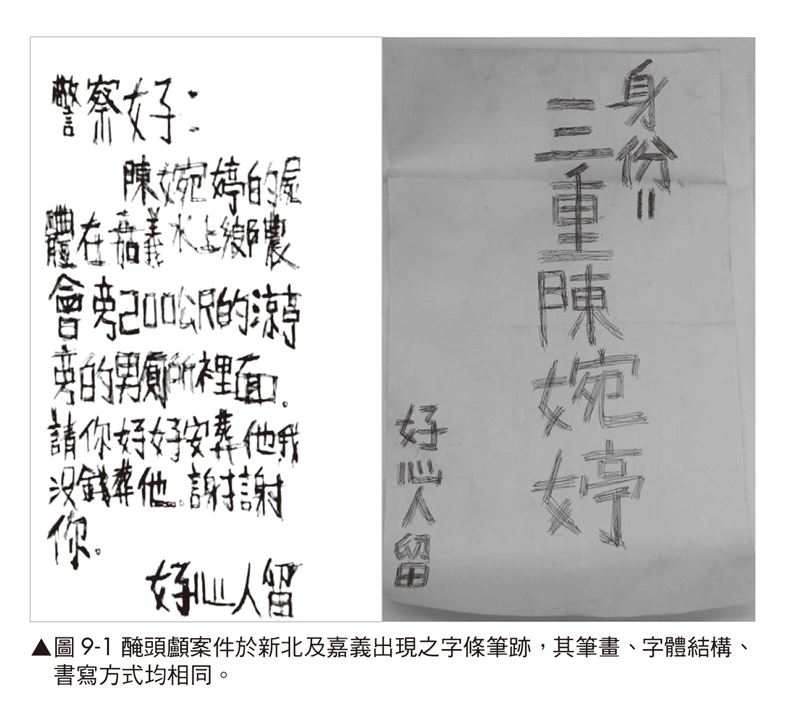 警察好：
陳婉婷的屍
體在嘉義水上鄉農
會旁200公尺的涼亭
旁的男廁所裡面.
請你好好安葬他我
沒錢葬他.謝謝
你。
好心人留
身份=
三重陳婉婷
好心人留
▲圖 9-1 醃頭顱案件於新北及嘉義出現之字條筆跡，其筆畫、字體結構、
書寫方式均相同。